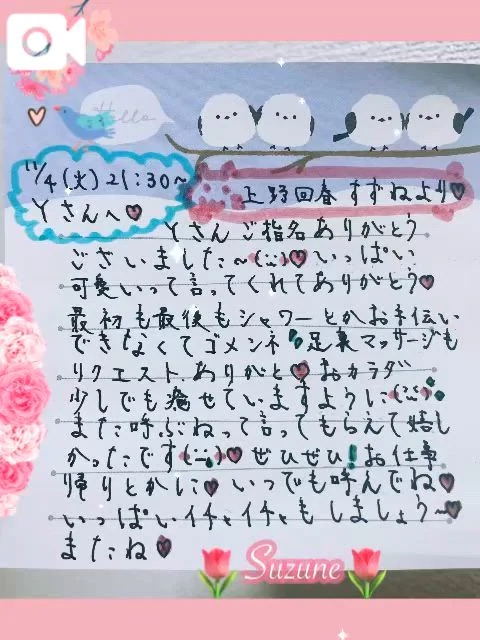 Hello
11/4(火)21:30~
Yさんへ♥
上野回春 すずねより♥
Yさんご指名ありがとう
ございました~(¨)♥いっぱい
可愛いって言ってくれてありがとう♥
最初も最後もシャワーとかお手伝い
できなくてゴメンネ 足裏マッサージも
リクエスト、ありがと♥おカラダ
少しでも癒せていますように(¨)
また呼ぶねって言ってもらえて嬉し
かったです(¨)♥ぜひぜひ!お仕事
帰りとかに♥いつでも呼んでね♥
いっぱいイチャイチャもしましょう~♥
またね♥
Suzune